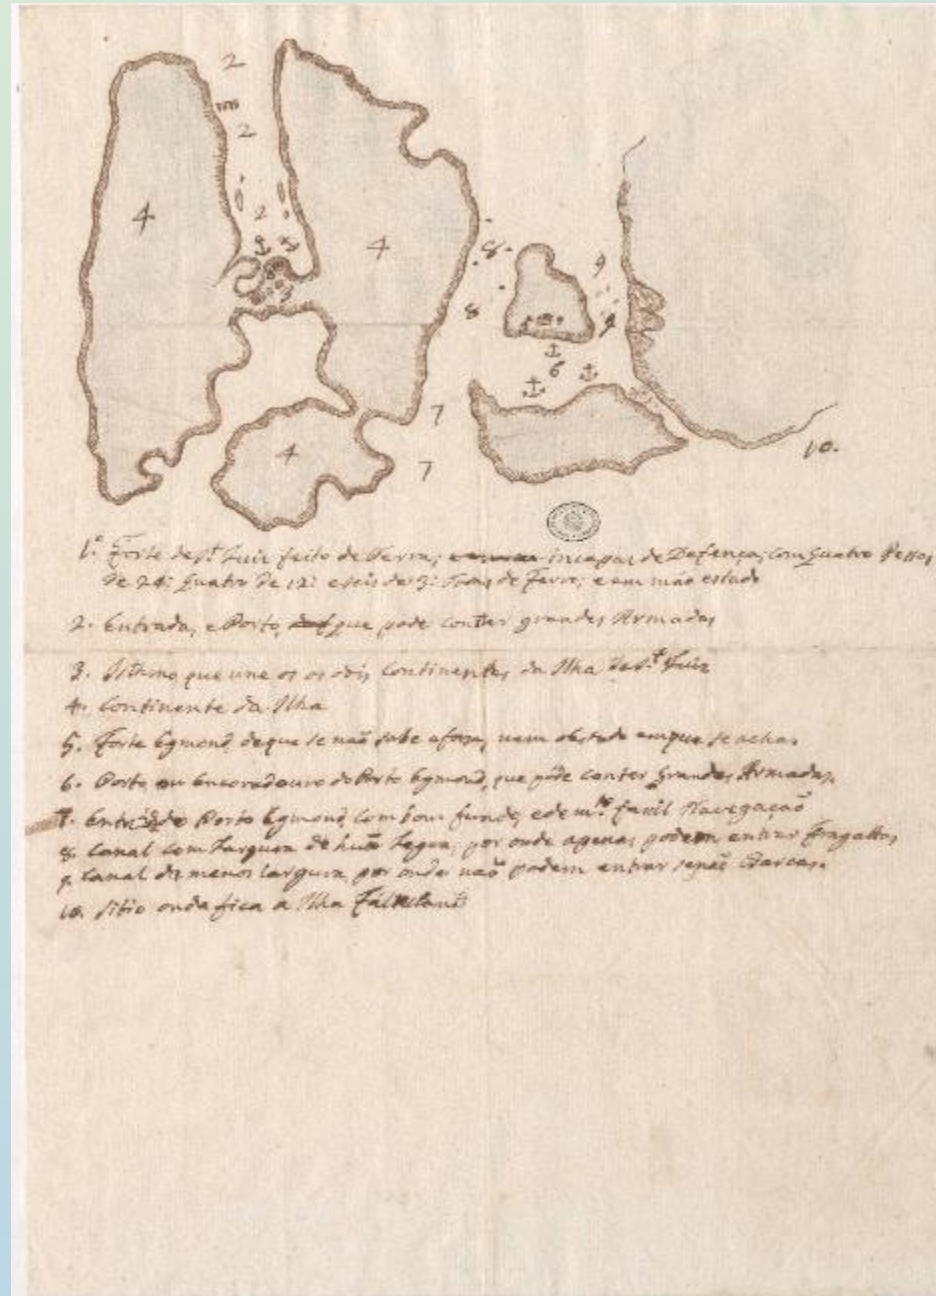 2
2
2
4
4
8
9
8
9
6
7
4
7
10.
1.º Forte de S.t Luiz feito de Terra; incapaz de Defença; com quatro Pessas
de 24: quatro de 12: e seis de 3: de Ferro; e em máo estado
2. Entrada, e Porto, que pode conter grandes Armadas
3. Isthmo que une os os dois Continentes da Ilha de S.t Luiz
4. Continente da Ilha
5. Forte Egmond, de que se naõ sabe a força, nem o estado em que se acha.
6. Porto ou Ancoradouro do Porto Egmond, que póde conter grandes Armadas.
7. Entrada do Porto Egmond, com bom fundo, e de m.to facil Navegaçaõ
8. Canal com Largura de huã Legua, por onde apenas podem entrar Fragattas
9. Canal de menos largura, por onde naõ podem entrar senaõ Barcas.
10. Sitio onde fica a Ilha